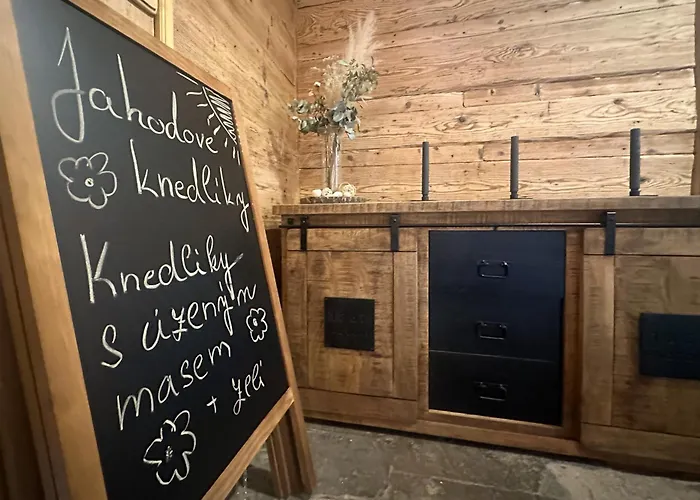 Jahodove
knedliky
Knedliky
s úzeným
masem
+ zelí